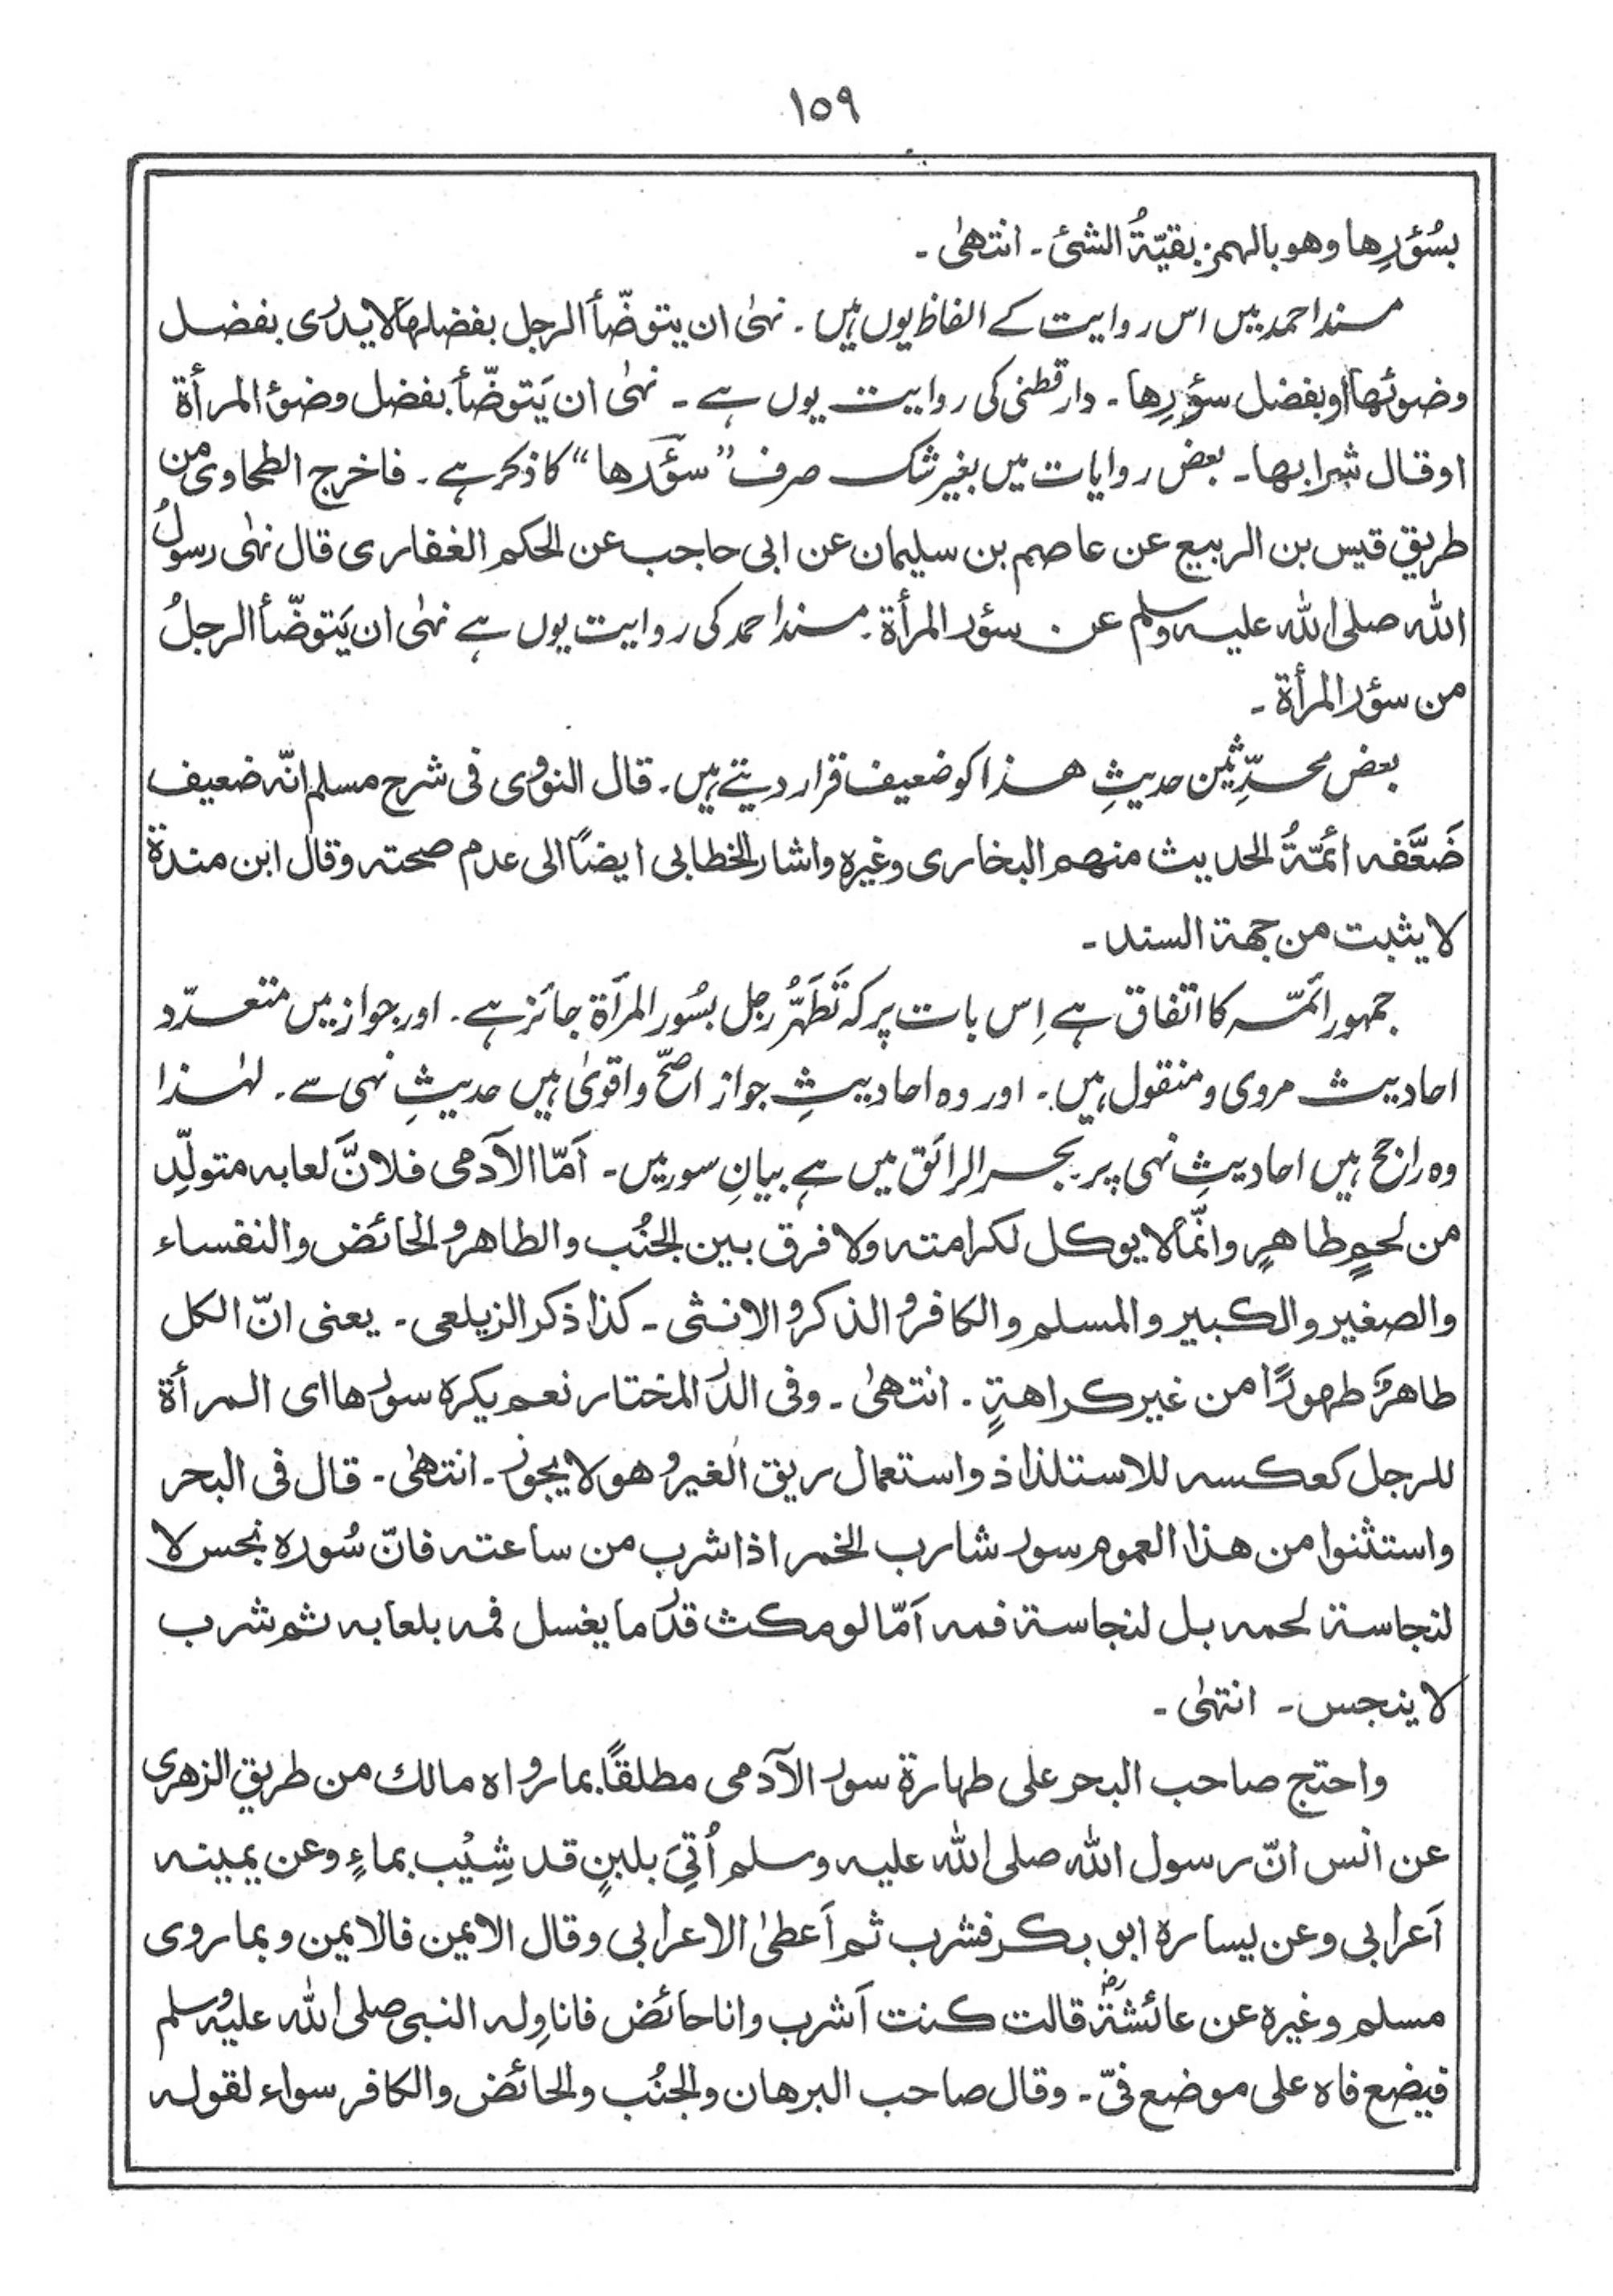 ١٥٩
بسُؤرِها وهو بالهمز بقيّةُ الشئ۔ انتهىٰ۔
مسند احمد میں اس روایت کے الفاظ یوں ہیں۔ نهىٰ ان يتوضّأ الرجل بفضلها لا يدرى بفضل
وضوئها او بفضل سؤرِها۔ دارقطنی کی روایت یوں ہے۔ نهىٰ ان يَتوضّأ بفضل وضؤ المرأة
او قال شرابها۔ بعض روایات میں بغیر شک صرف ”سؤرها“ کا ذکر ہے۔ فاخرج الطحاوى من
طريق قيس بن الربيع عن عاصم بن سليمان عن ابى حاجب عن الحكم الغفارى قال نهىٰ رسولُ
الله صلى الله عليه وسلم عن سؤر المرأة۔ مسند احمد کی روایت یوں ہے نهىٰ ان يَتوضّأ الرجلُ
من سؤر المرأة۔
بعض محدِّثین حدیثِ ھذا کو ضعیف قرار دیتے ہیں۔ قال النووى فى شرح مسلم انّه ضعيف
ضَعَّفه أئمّةُ الحديث منهم البخارى وغيره واشار الخطابى ايضًا الى عدم صحته وقال ابن مندة
لا يثبت من جهة السند۔
جمہور ائمّہ کا اتفاق ہے اِس بات پر کہ تَطَهُّرُ رجل بسُور المرأة جائز ہے۔ اور جواز میں متعدّد
احادیث مروی و منقول ہیں۔ اور وہ احادیثِ جواز اصحّ واقوىٰ ہیں حدیثِ نہی سے۔ لہٰذا
وہ راجح ہیں احادیثِ نہی پر بحر الرائق میں ہے بیانِ سور میں۔ اَمّا الآدمى فلانَّ لعابه متولِّد
من لحمٍ طاهرٍ وانّما لا يوكل لكرامته ولا فرق بين الجنُب والطاهر والحائض والنفساء
والصغير والكبير والمسلم والكافر والذكر والانثى۔ كذا ذكر الزيلعى۔ يعنى انّ الكل
طاهر طهورًا من غير كراهةٍ۔ انتهىٰ۔ وفى الدر المختار نعم يكره سورها اى المرأة
للرجل كعكسه للاستلذاذ واستعمال ريق الغير وهو لا يجوز۔ انتهىٰ۔ قال فى البحر
واستثنوا من هذا العموم سور شارب الخمر اذا شرب من ساعته فانّ سُوره نجس لا
لنجاسة لحمه بل لنجاسة فمه اَمّا لو مكث قدر ما يغسل فمه بلعابه ثم شرب
لا ينجس۔ انتهىٰ۔
واحتج صاحب البحر على طهارة سور الآدمى مطلقًا بما رواه مالك من طريق الزهرى
عن انس انّ رسول الله صلى الله عليه وسلم اُتِىَ بلبنٍ قد شِيْب بماءٍ وعن يمينه
اَعرابى وعن يساره ابو بكر فشرب ثم اَعطىٰ الاعرابى وقال الايمن فالايمن وبما روى
مسلم وغيره عن عائشةؓ قالت كنت اَشرب وانا حائض فاناوِله النبى صلى الله عليه وسلم
فيضع فاه على موضع فىّ۔ وقال صاحب البرهان والجنُب والحائض والكافر سواء لقوله